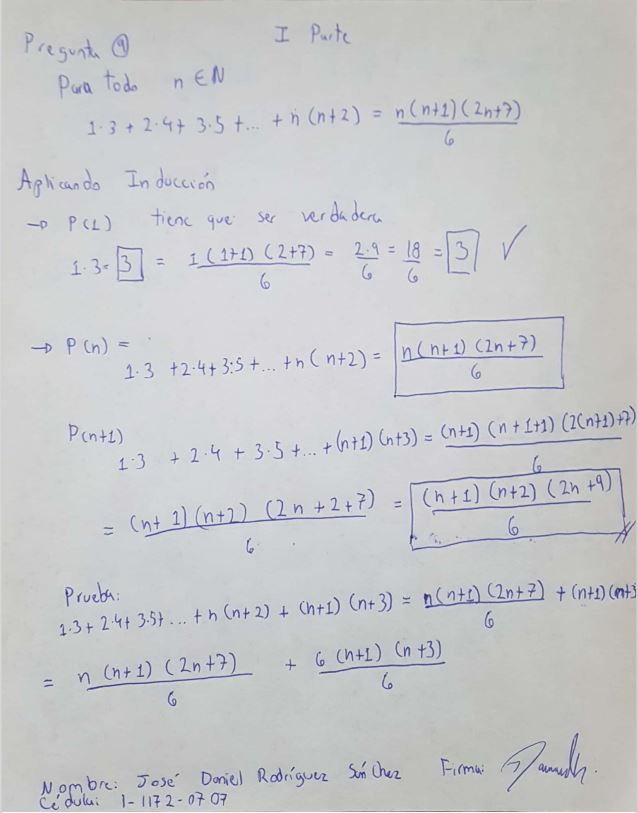 I Parte
Pregunta 9
Para todo n ∈ N
1·3 + 2·4 + 3·5 + ... + n(n+2) = n(n+1)(2n+7)/6
Aplicando Inducción
→ P(1) tiene que ser verdadera
1·3 = 3 = 1(1+1)(2+7)/6 = 2·9/6 = 18/6 = 3 ✓
→ P(n) =
1·3 + 2·4 + 3·5 + ... + n(n+2) = n(n+1)(2n+7)/6
P(n+1)
1·3 + 2·4 + 3·5 + ... + (n+1)(n+3) = (n+1)(n+1+1)(2(n+1)+7)/6
= (n+1)(n+2)(2n+2+7)/6 = (n+1)(n+2)(2n+9)/6
Prueba:
1·3 + 2·4 + 3·5 + ... + n(n+2) + (n+1)(n+3) = n(n+1)(2n+7)/6 + (n+1)(n+3
= n(n+1)(2n+7)/6 + 6(n+1)(n+3)/6
Nombre: José Daniel Rodríguez Sánchez Firma:
Cédula: 1-1172-0707